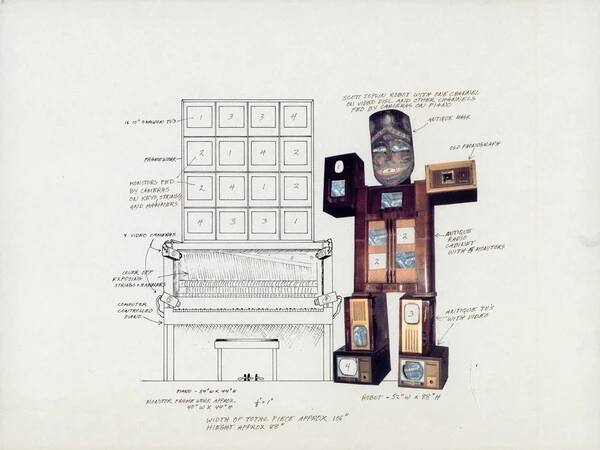 SCOTT JOPLIN ROBOT WITH ONE CHANNEL
ON VIDEO DISC AND OTHER CHANNELS
FED BY CAMERAS ON PIANO
ANTIQUE MASK
OLD PHONOGRAPH
ANTIQUE
RADIO
CABINET
WITH 5 MONITORS
ANTIQUE TV'S
WITH VIDEO
16 10" SAMSUNG TV'S
FRAMEWORK
MONITORS FED
BY CAMERAS
ON KEYS, STRINGS
AND HAMMERS
4 VIDEO CAMERAS
COVER OFF
EXPOSING
STRINGS + HAMMERS
COMPUTER
CONTROLLED
PIANO
1 3 3 4
2 1 4 2
2 4 1 2
4 3 3 1
1
2
2
3
4
PIANO - 54" W X 44" H
MONITOR FRAMEWORK APPROX.
40" W X 44" H
ROBOT - 52" W X 88" H
WIDTH OF TOTAL PIECE APPROX. 106"
HIEGHT APPROX 88"